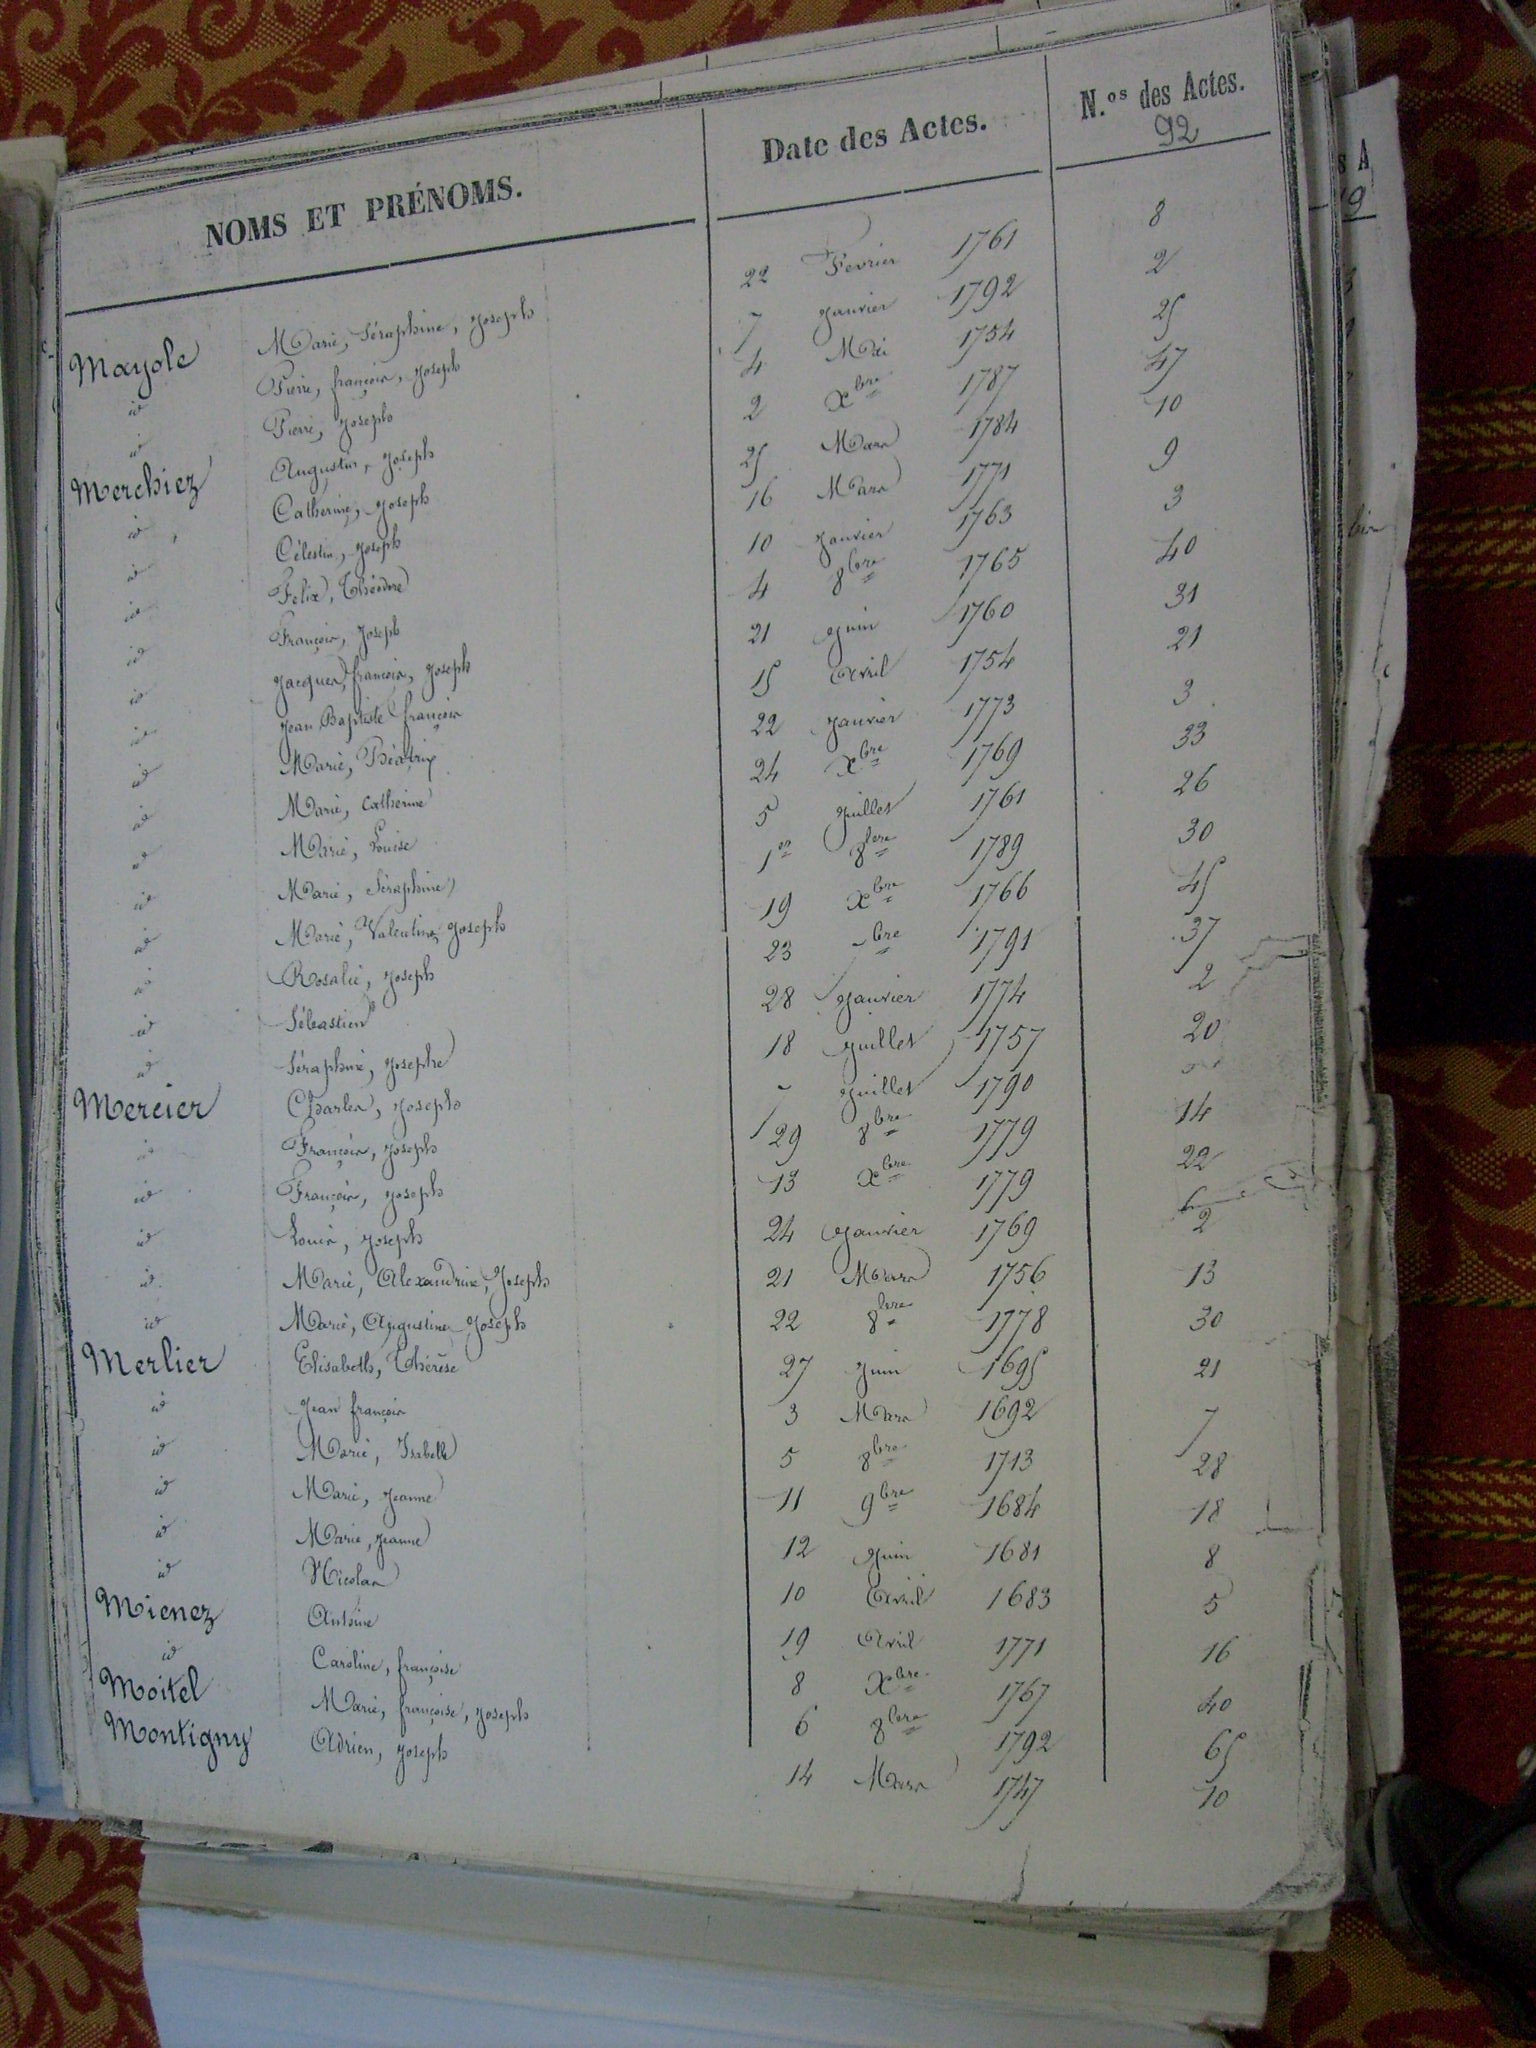 NOMS ET PRÉNOMS. Date des Actes. N.os des Actes.
92
Mayole Marie, Séraphine, Joseph 22 Fevrier 1761 8
id Pierre, françois, Joseph 7 Janvier 1792 2
id Pierre, Joseph 4 Mai 1754 25
Merchiez Augustin, Joseph 2 Xbre 1787 47
id Catherine, Joseph 25 Mars 1784 10
id Célestin, Joseph 16 Mars 1771 9
id Felix, Théodore 10 Janvier 1763 3
id François, Joseph 4 8bre 1765 40
id Jacques, françois, Joseph 21 Juin 1760 31
id Jean Baptiste françois 15 Avril 1754 21
id Marie, Béatrix 22 Janvier 1773 3
id Marie, Catherine 24 Xbre 1769 33
id Marie, Louise 5 Juillet 1761 26
id Marie, Séraphine 1er 8bre 1789 30
id Marie, Valentine, Joseph 19 Xbre 1766 45
id Rosalie, Joseph 23 7bre 1791 37
id Sébastien 28 Janvier 1774 2
id Séraphine, Josephe 18 Juillet 1757 20
Mercier Charles, Joseph 7 Juillet 1790
id François, Joseph 29 8bre 1779 14
id François, Joseph 13 Xbre 1779 22
id Louis, Joseph 24 Janvier 1769 2
id Marie, Alexandrine, Joseph 21 Mars 1756 13
id Marie, Augustine Joseph 22 8bre 1778 30
Merlier Elisabeth, Thérèse 27 Juin 1695 21
id Jean françois 3 Mars 1692 7
id Marie, Isabelle 5 8bre 1713 28
id Marie, Jeanne 11 9bre 1684 18
id Marie, Jeanne 12 Juin 1681 8
id Nicolas 10 Avril 1683 5
Mienez Antoine 19 Avril 1771 16
id Caroline, françoise 8 Xbre 1767 40
Moitel Marie, françoise, Joseph 6 8bre 1792 65
Montigny Adrien, Joseph 14 Mars 1747 10